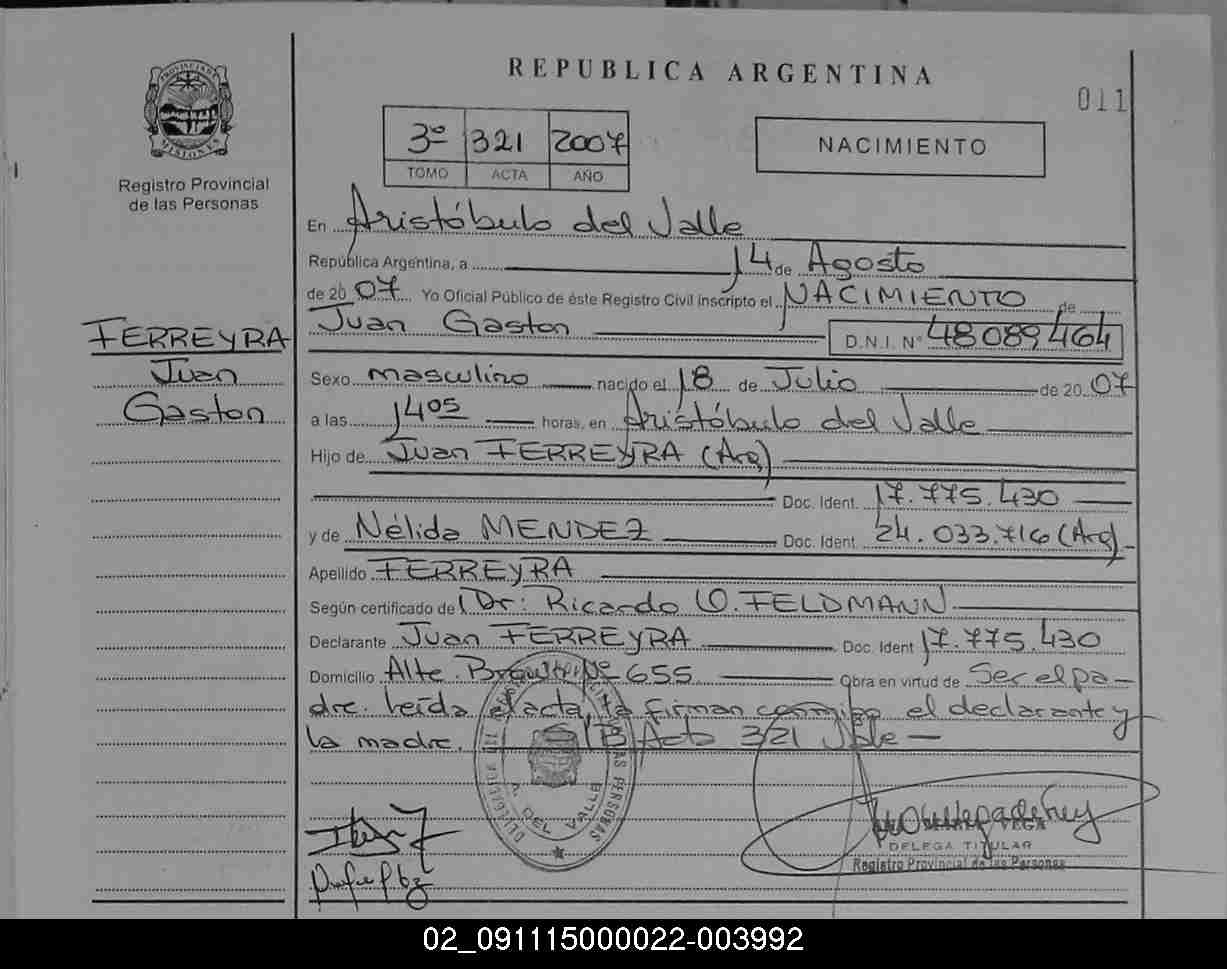 REPUBLICA ARGENTINA
011
PROVINCIA DE MISIONES
Registro Provincial
de las Personas
3º 321 2007
TOMO ACTA AÑO
NACIMIENTO
En Aristóbulo del Valle
República Argentina, a 14 de Agosto
de 20 07 Yo Oficial Público de éste Registro Civil inscripto el NACIMIENTO de
Juan Gaston D.N.I. Nº 48089464
FERREYRA
Juan
Gaston
Sexo masculino nacido el 18 de Julio de 20 07
a las 1405 horas, en Aristóbulo del Valle
Hijo de Juan FERREYRA (Arg)
Doc. Ident. 17.775.430
y de Nélida MENDEZ Doc. Ident. 24.033.716 (Arg)
Apellido FERREYRA
Según certificado de Dr: Ricardo O. FELDMANN
Declarante Juan FERREYRA Doc. Ident 17.775.430
Domicilio Alte. Brown Nº 655 Obra en virtud de Ser el pa-
dre. Leída el acta, la firman conmigo el declarante y
la madre. Acta 321 Vale
DEL VALLE
VEGA
DELEGA TITULAR
Registro Provincial de las Personas
02_091115000022-003992